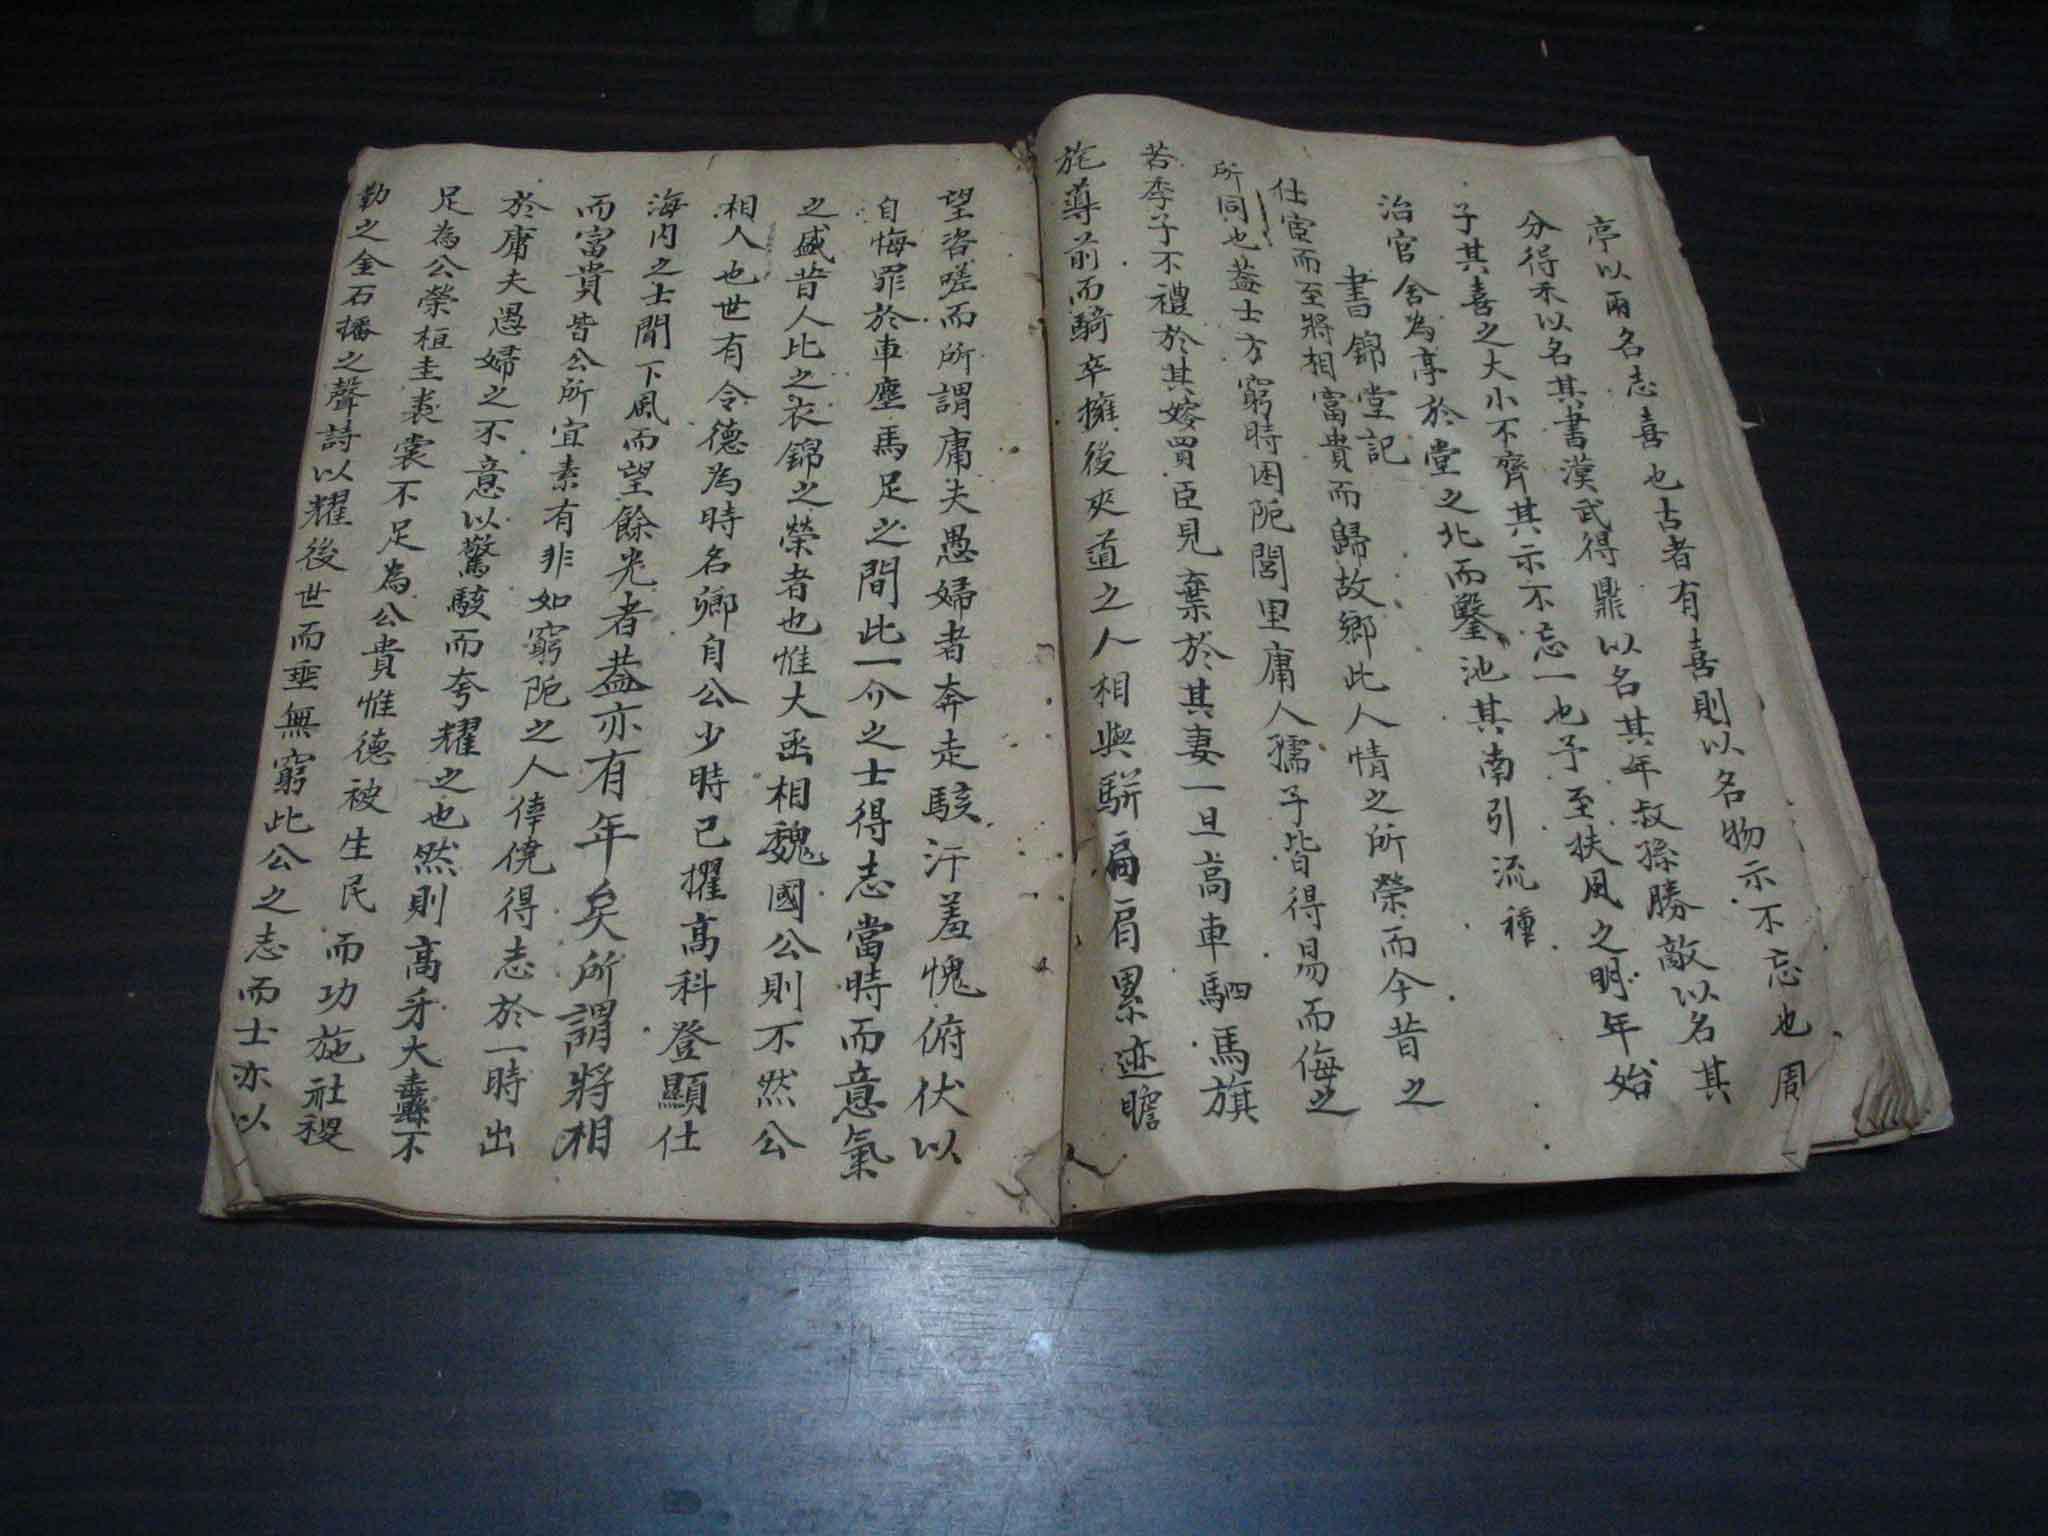 亭以兩名志喜也古者有喜則以名物示不忘也周
分得禾以名其書漢武得鼎以名其年叔孫勝敵以名其
子其喜之大小不齊其示不忘一也予至扶風之明年始
治官舍為享於堂之北而鑿池其南引流種
書錦堂記
仕宦而至將相富貴而歸故鄉此人情之所榮而今昔之
所同也蓋士方窮時困阨閭里庸人孺子皆得易而侮之
若季子不禮於其嫂買臣見棄於其妻一旦高車駟馬旗
旄導前而騎卒擁後夾道之人相與駢肩累迹瞻
望咨嗟而所謂庸夫愚婦者奔走駭汗羞愧俯伏以
自悔罪於車塵馬足之間此一介之士得志當時而意氣
之盛昔人比之衣錦之榮者也惟大丞相魏國公則不然公
相人也世有令德為時名卿自公少時已擢高科登顯仕
海内之士聞下風而望餘光者蓋亦有年矣所謂將相
而富貴皆公所宜素有非如窮阨之人倖僥得志於一時出
於庸夫愚婦之不意以驚駭而夸耀之也然則高牙大纛不
足為公榮桓圭袞裳不足為公貴惟德被生民而功施社稷
勒之金石播之聲詩以耀後世而垂無窮此公之志而士亦以